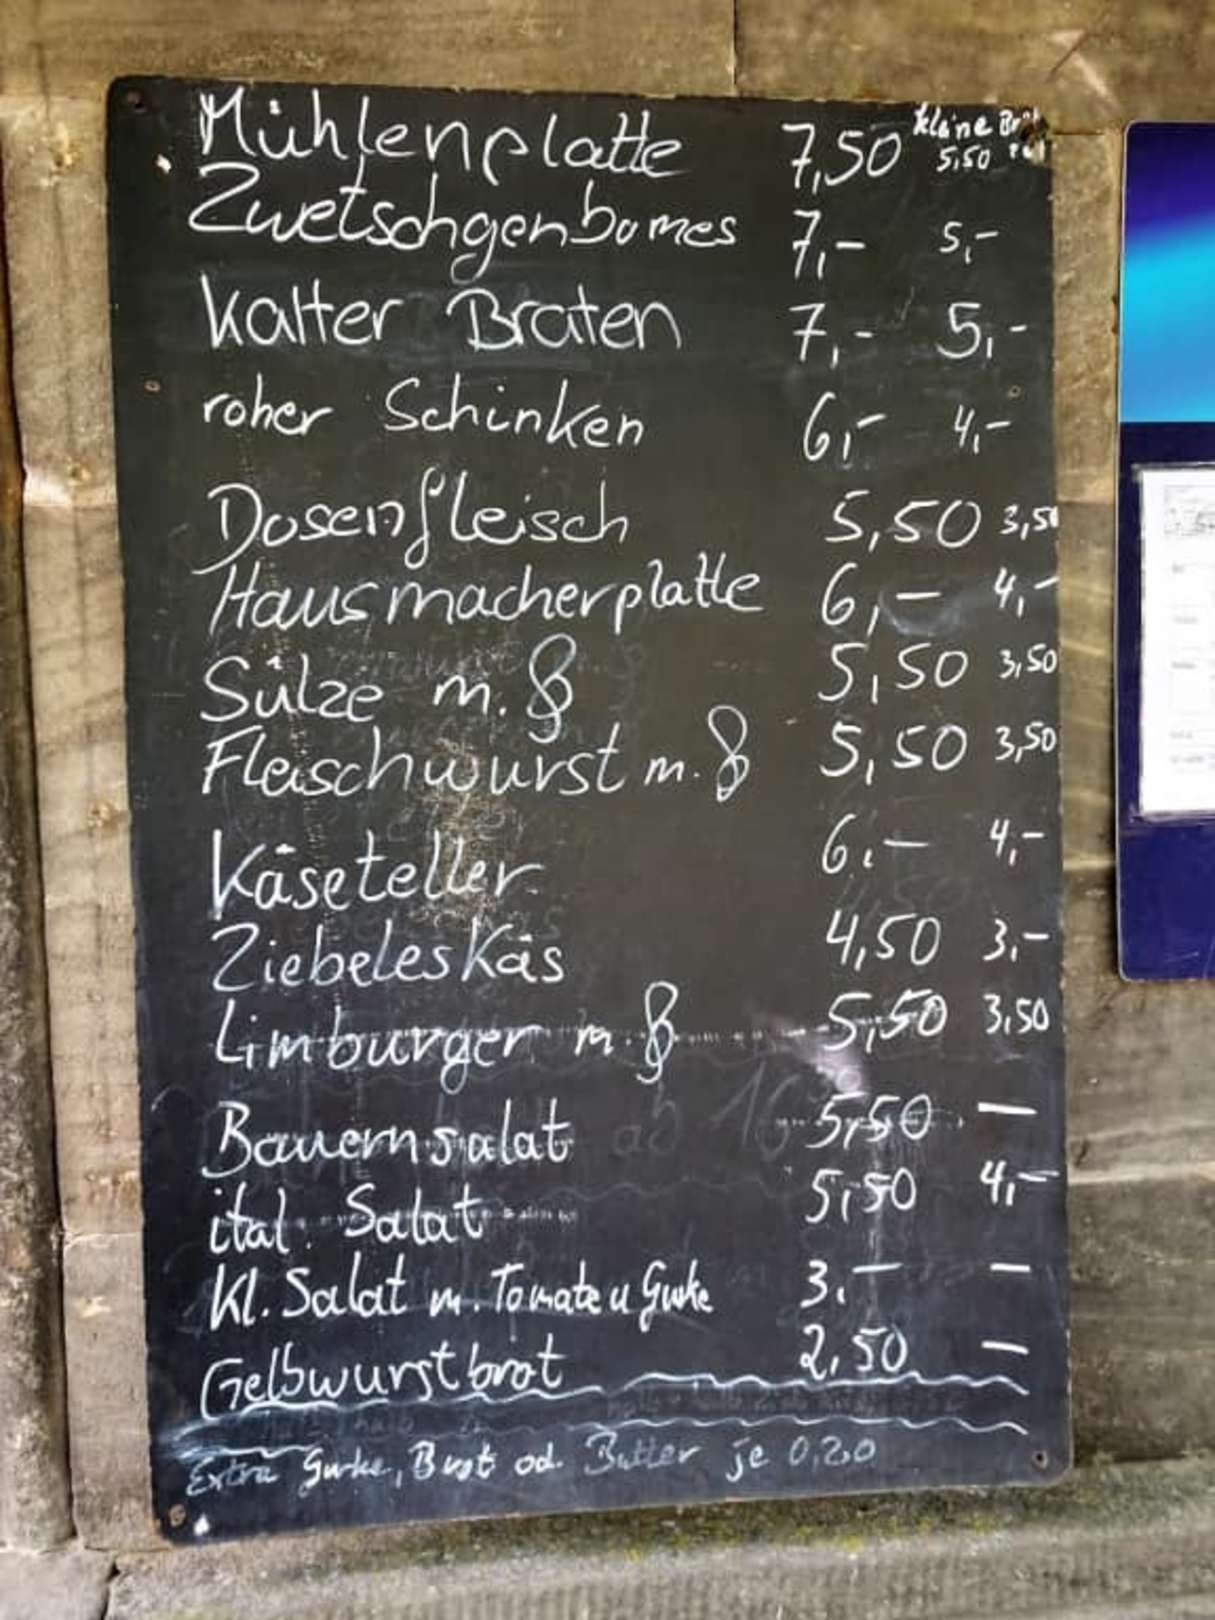 Mühlenplatte 7,50 kleine 5,50
Zwetschgenbames 7,- 5,-
Kalter Braten 7,- 5,-
roher Schinken 6,- 4,-
Dosenfleisch 5,50 3,50
Hausmacherplatte 6,- 4,-
Sülze m. 5,50 3,50
Fleischwurst m. 5,50 3,50
Käseteller 6.- 4,-
Ziebeleskäs 4,50 3,-
Limburger m. 5,50 3,50
Bauernsalat 5,50 -
ital. Salat 5,50 4,-
Kl. Salat m. Tomate u Gurke 3.- -
Gelbwurstbrot 2,50 -
Extra Gurke, Brot od. Butter je 0,20